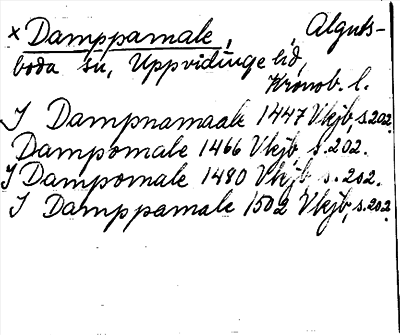 × Damppamale, , Alguts-
boda sn, Uppvidinge hd,
Kronob. l.
J Dampnamaale 1447 Vkjb, s.202.
Dampomale 1466 Vkjb s.202.
J Dampomale 1480 Vkjb s.202.
J Damppamale 1502 Vkjb, s.202